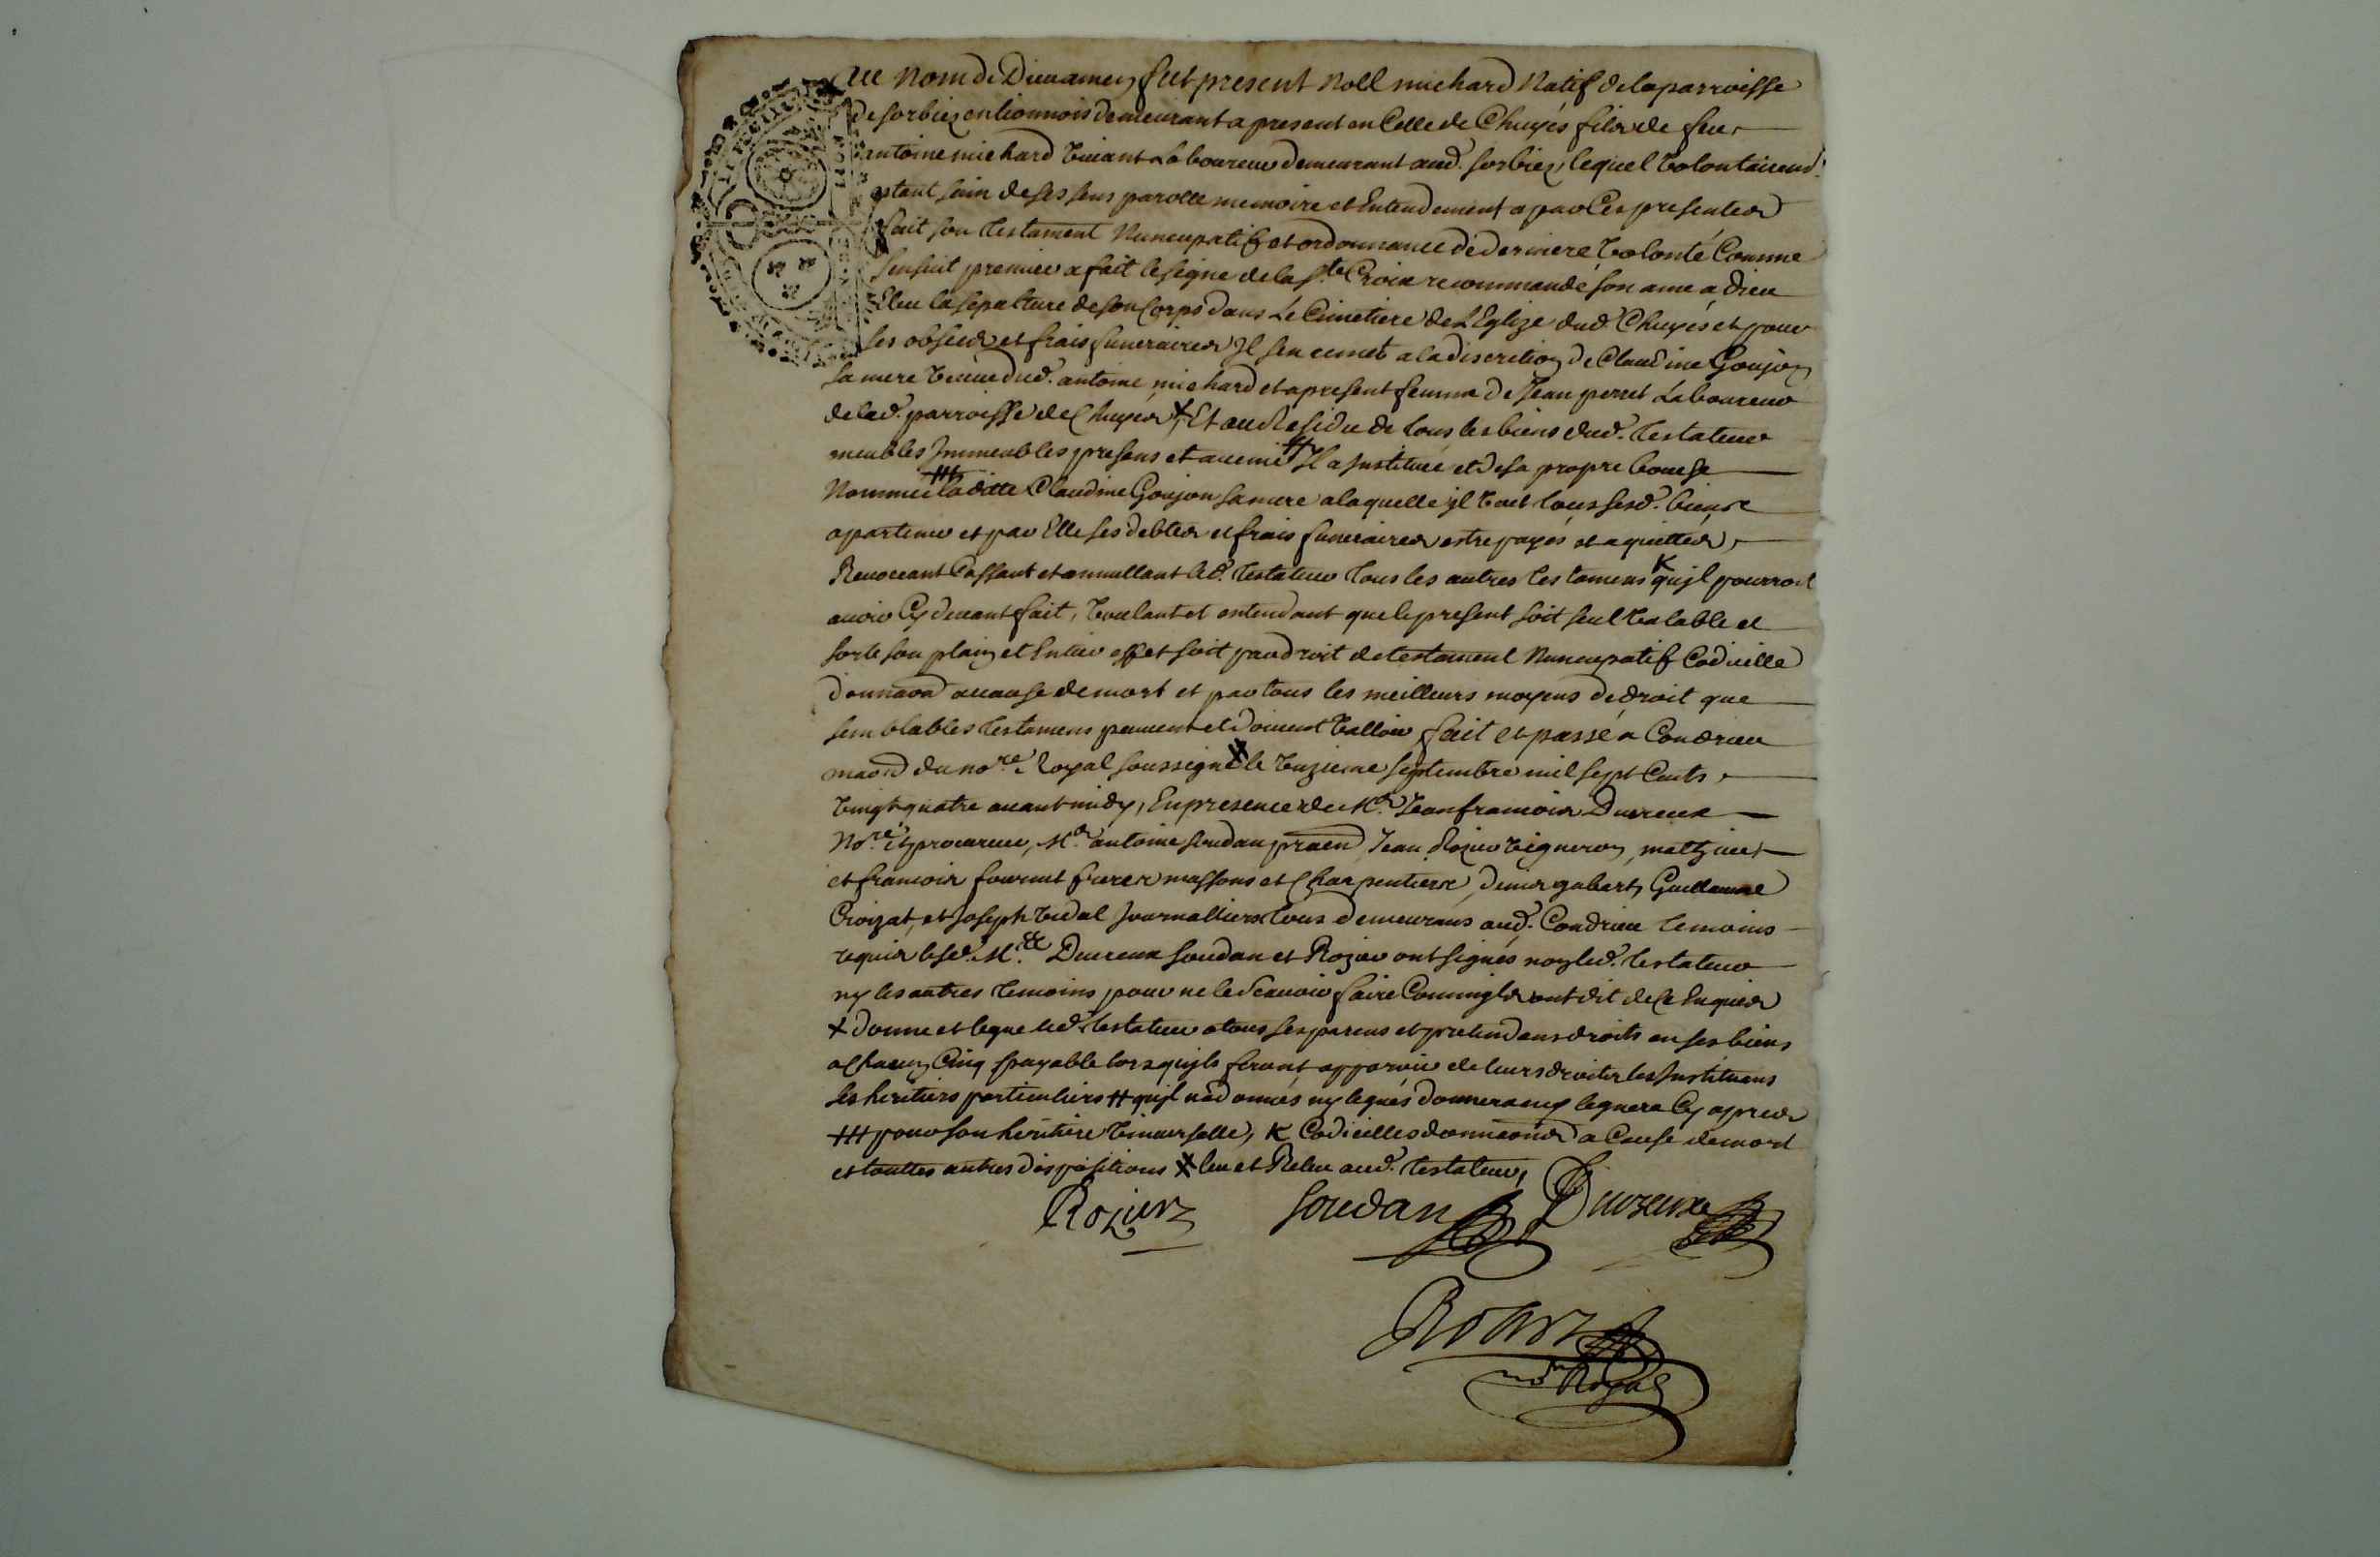 Au Nom de Dieu amen fut present Noll michard Natif de la parroisse
de sorbiez en lionnois demeurant a present en Celle de Chuyés fils de feu
antoine michard vivant Laboureur demeurant aud. sorbiez, lequel volontairemt.
estant sain de ses sens parolle memoire et Entendement a par Ces presentes
fait son testament Nuncupatif et ordonnance de derniere volonté Comme
sensuit premier a fait le signe de la ste. Croix recommandé son ame a dieu
Eleu la sepulture de son Corps dans Le Cimetiere de L'Eglize dud. Chuyes et pour
ses obseds et frais funeraires Il sen remet a la discretion de Claudine Goujon
sa mere veuve dud. antoine michard et a present femme de Jean perret Laboureur
de lad. parroisse de Chuyes + Et au Residu de tous les biens dud. testateur
meubles Immeubles presens et avenir ++ Il a Institué et de sa propre bouche
Nommée +++ laditte Claudine Goujon sa mere a laquelle jl veut tous sesd. biens
apartenir et par Elle ses debtes et frais funeraires estre payés et aquittés,
Revocant Cassant et annullant led. testateur tous les autres testamens K qujl pourroit
avoir Cy devant fait, voulant et entendant que le present soit seul valable et
sorte son plain et Entier effet soit par droit de testament Nuncupatif Codicille
donnaon a cause de mort et par tous les meilleurs moyens de droit que
semblables testamens peuvent et doivent valloir fait et passé a Condrieu
maon du nore. Royal soussigné X le unzieme septembre mil sept Cents
vingt quatre avant midy, En presence de Mr. Jean francois Dureux
Nore. et procureur, Mr. antoine soudan praen Jean Rozier vigneron, mathieu
et francois fournel freres massons et Charpentiers, denis gabert, Guillaume
Croizat, et Joseph vidal Journalliers tous demeurans aud. Condrieu temoins
requis lesd. Mrs. Dureux soudan et Rozier ont signés non led. testateur
ny les autres temoins pour ne le scavoir faire Comme jls ont dit de Ce Enquis
+ donne et legue led. testateur a tous ses parens et pretendans droits en ses biens
a Chacun Cinq s payable lors qujls feront apparoir de leurs droits les Instituans
ses heritiers particuliers ++ qujl na donnés ny legués donnera ny leguera Cy apres
+++ pour son heritiere universelle, K Codicilles donnaons a Cause de mort
et touttes autres dispositions X leu et Releu aud. testateur,
Rozier soudan Dureux
no.re Royal